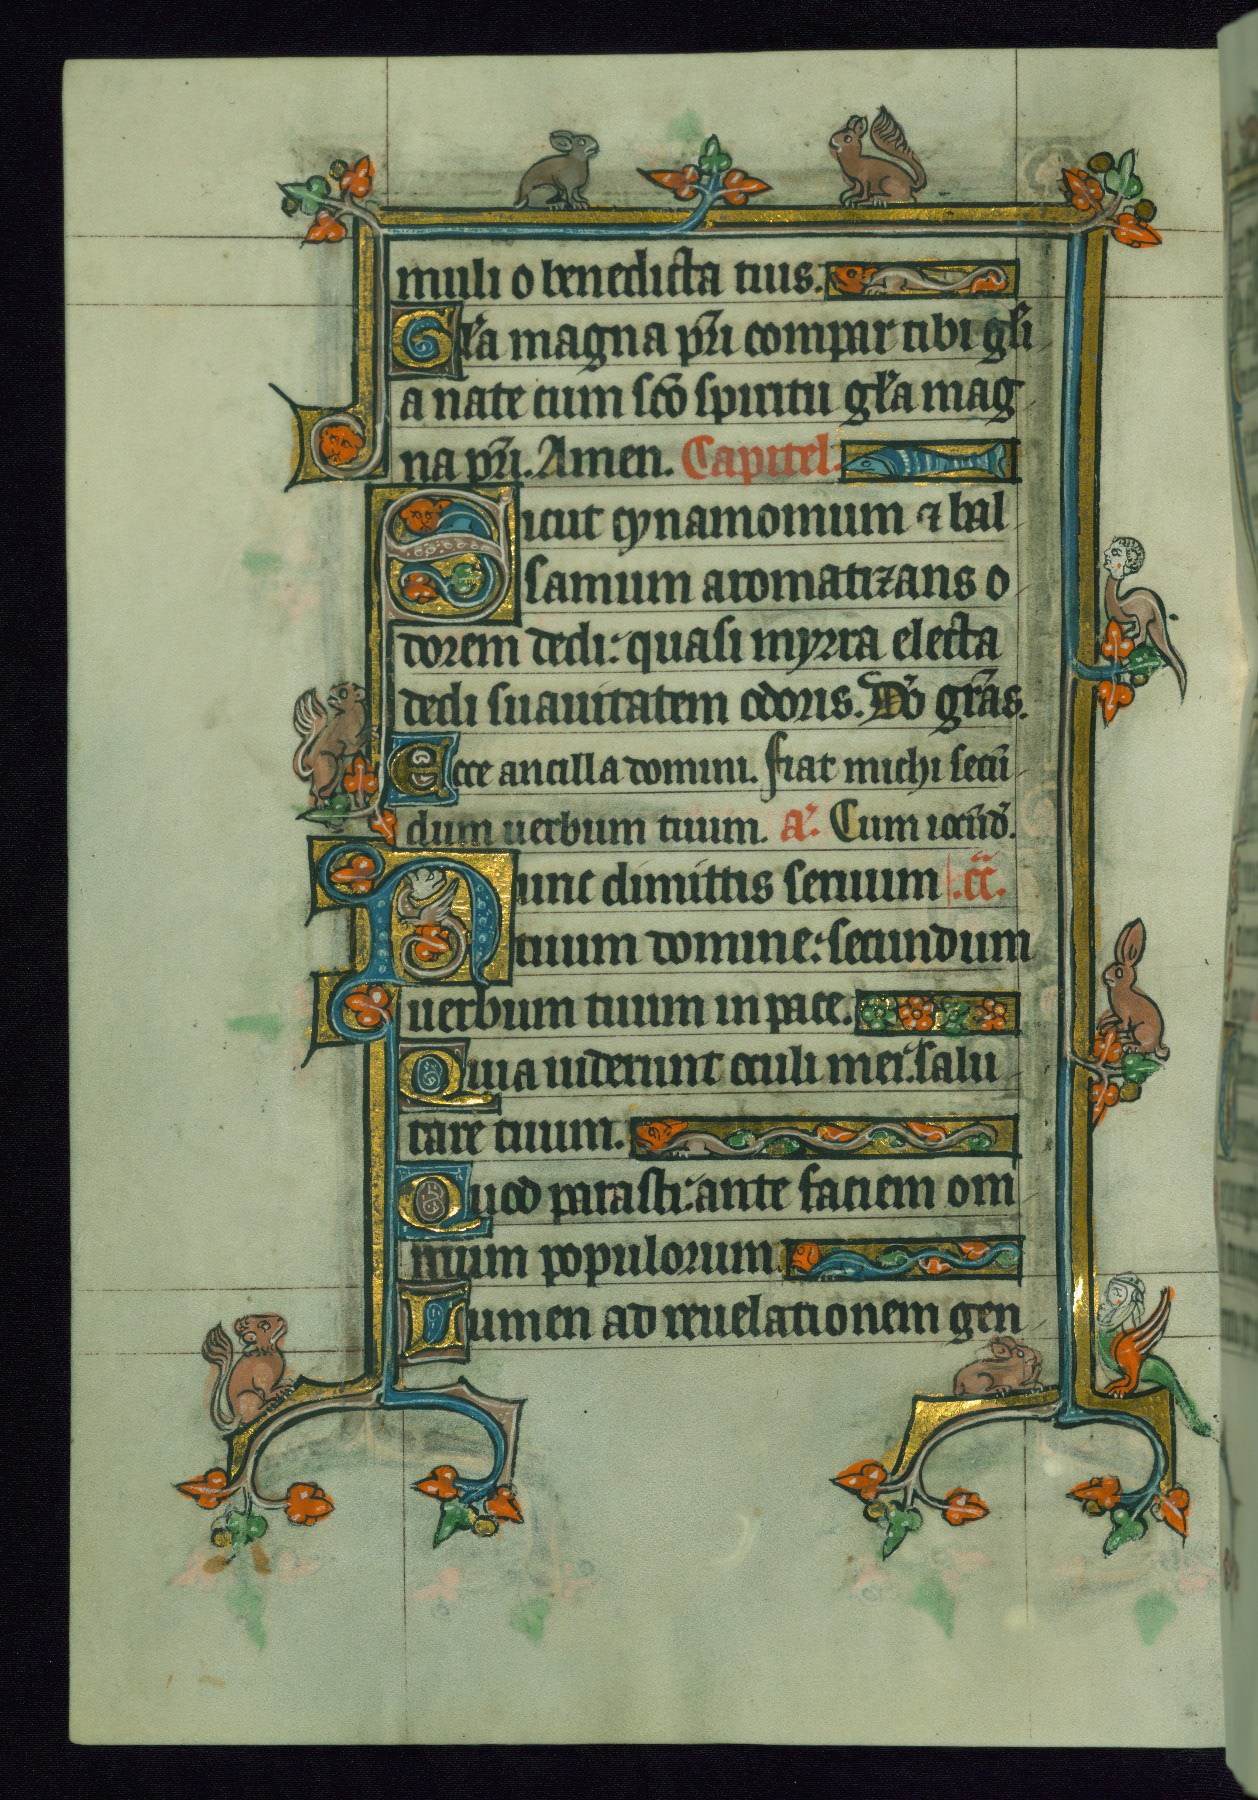 muli o benedicta tuis.
Gl'a magna pr̄i compar tibi gl'i
a nate cum sc̄o spiritu gl'a mag
na pr̄i. Amen. Capitel.
Sicut cynamomum ⁊ bal
samum aromatizans o
dorem dedi: quasi myrra electa
dedi suauitatem odoris. Dō gr̄as.
Ecce ancilla domini. Fiat michi secū
dum uerbum tuum. a'. Cum iocūd'.
Nunc dimittis seruum .cc̄.
tuum domine: secundum
uerbum tuum in pace.
Quia uiderunt oculi mei: salu
tare tuum.
Quod parasti: ante faciem om
nium populorum
Lumen ad reuelationem gen